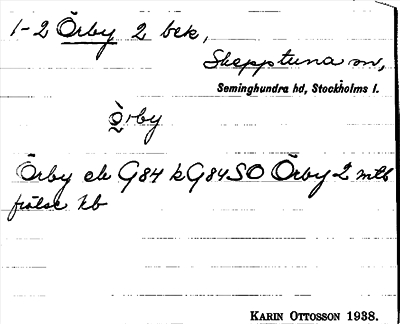 1-2 Örby 2 bek,
Skepptuna sn,
Seminghundra hd, Stockholms l.
Ö̀rby
Örby ek G84 k G84 SO Örby 2 mtl
frälse kb
KARIN OTTOSSON 1938.